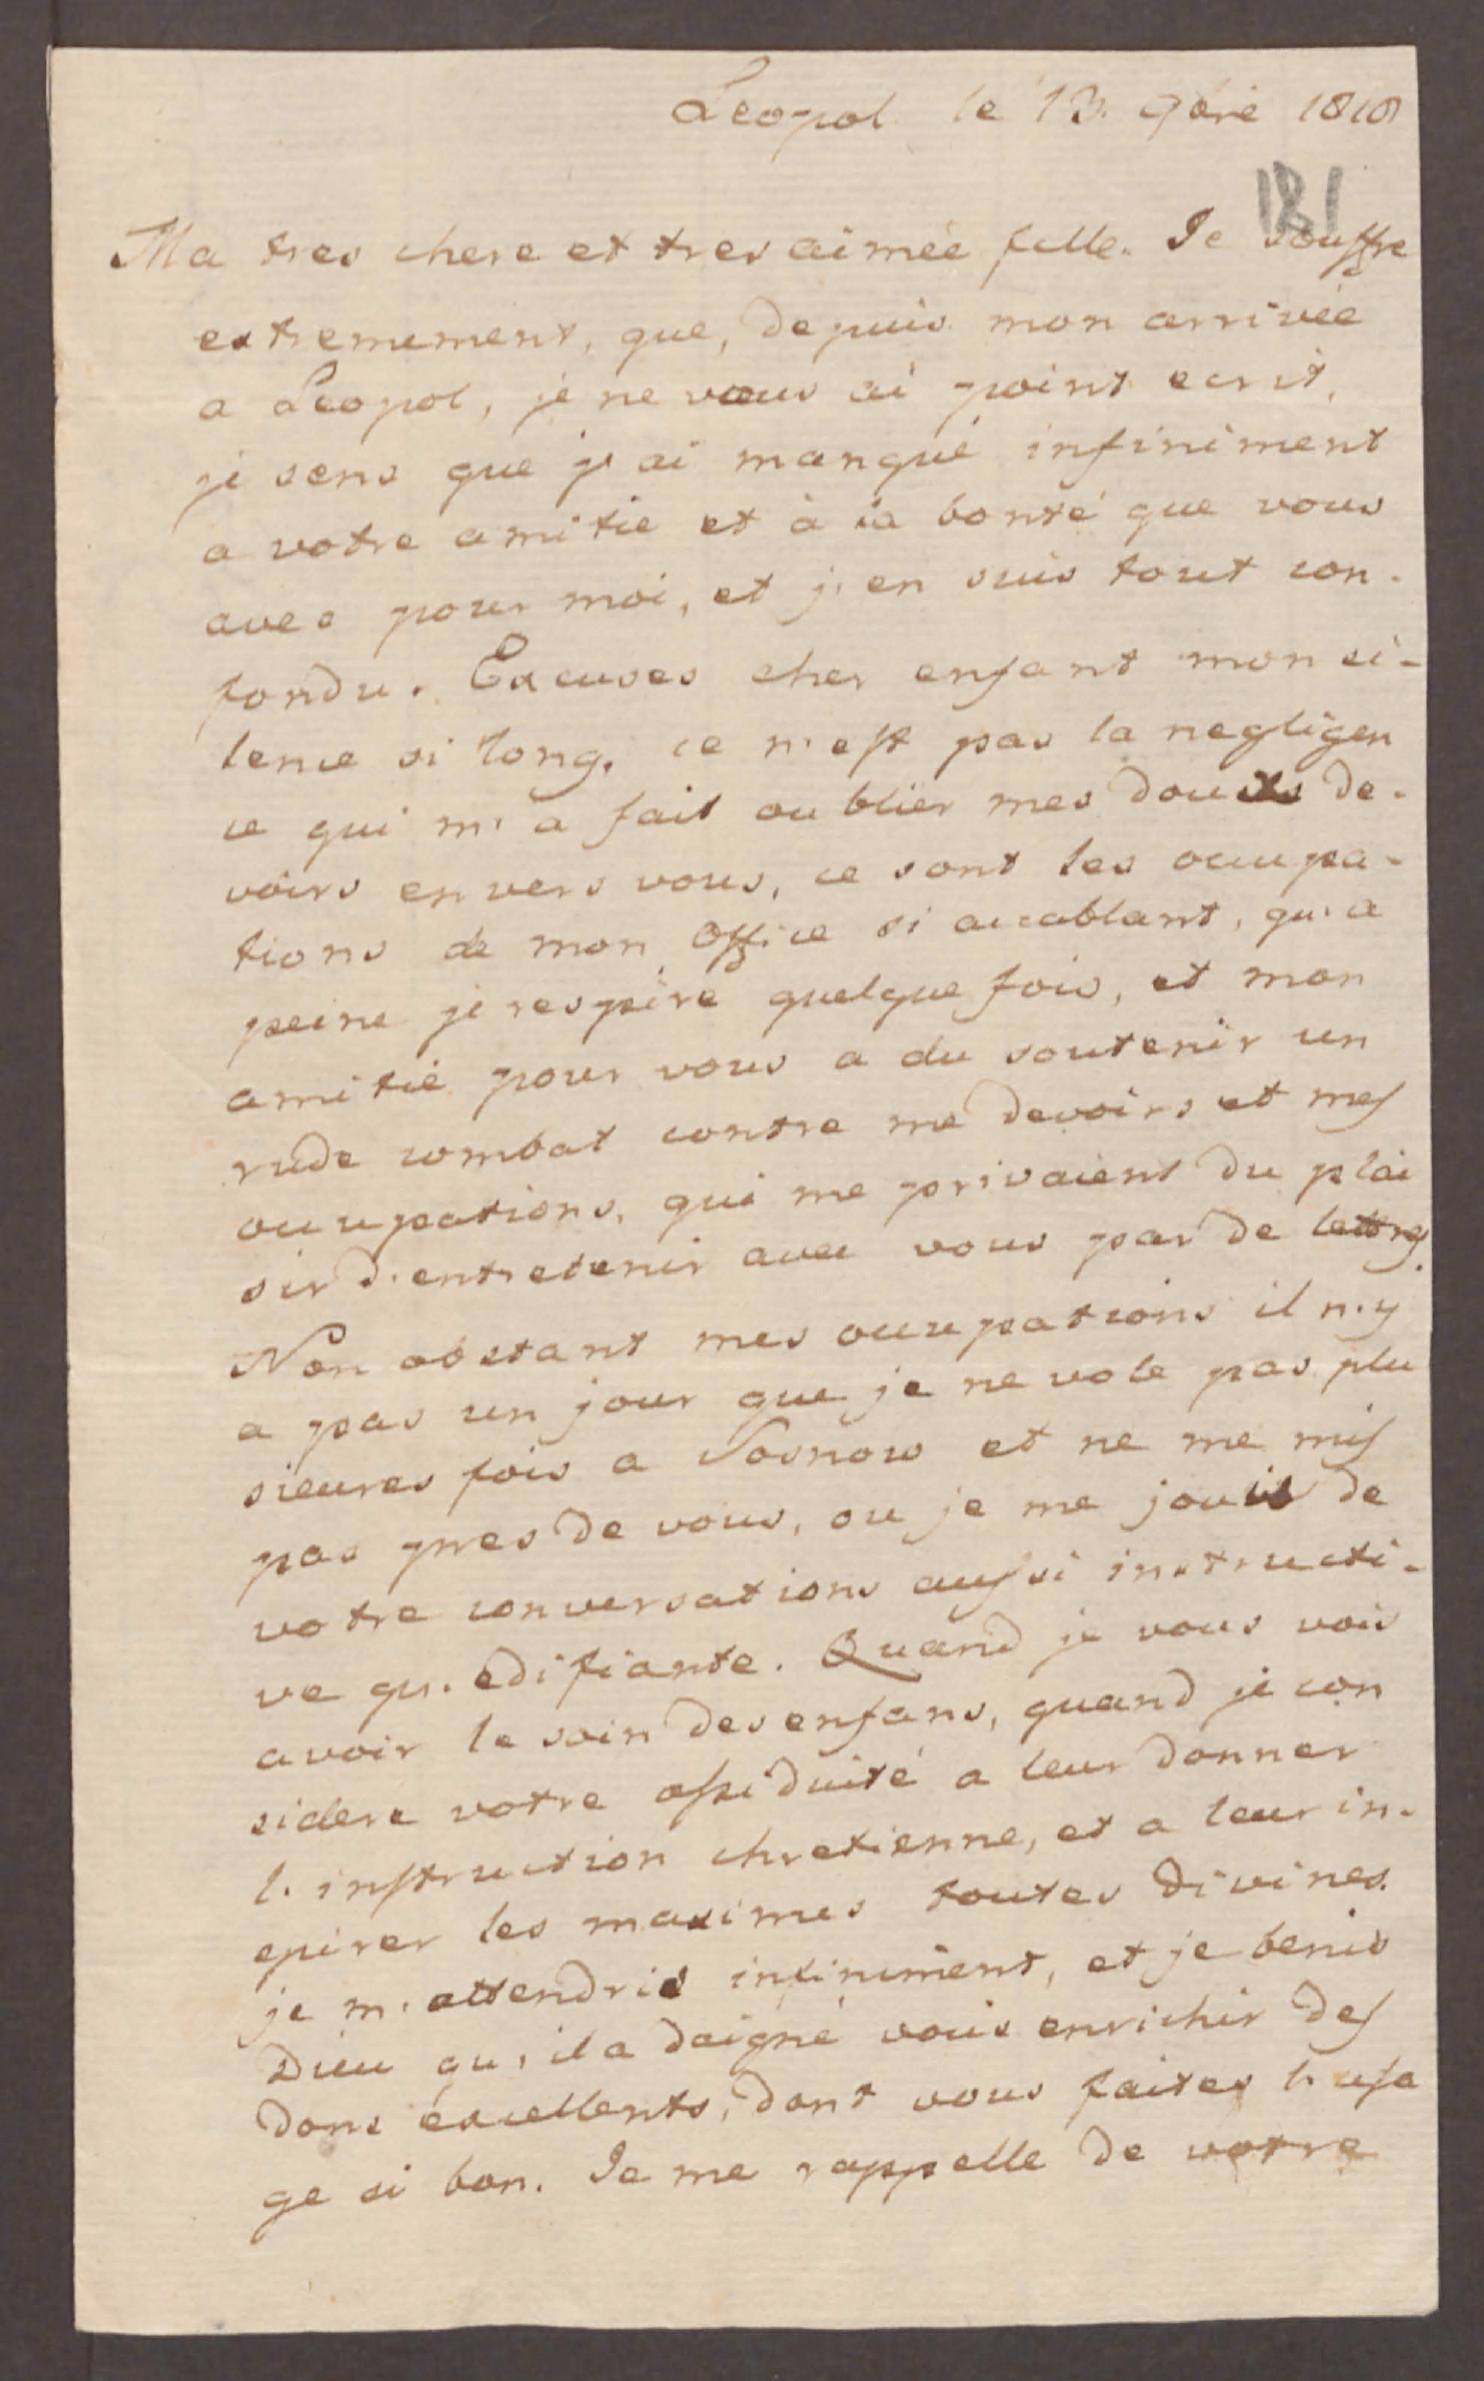 Leopol le 13. 9bre 1818
181
Ma tres chere et tres aimée fille. Je souffre
extremement, que, depuis mon arrivée
a Leopol, je ne vous ai point ecrit,
je sens que j'ai manqué infiniment
a votre amitie et à la bonté que vous
avez pour moi, et j'en suis tout con-
fondu. Excuses cher enfant mon si-
lence si long, ce n'est pas la negligen
ce qui m'a fait oublier mes doux de-
voirs envers vous, ce sont les occupa-
tions de mon office si accablant, qu'a
peine je respire quelque fois, et mon
amitié pour vous a du soutenir un
rude combat contre me devoirs et mes
occupations, qui me privaient du plai
sir d'entretenir avec vous par de lettres.
Non obstant mes occupations il n'y
a pas un jour que je ne vole pas plu
sieures fois a Sosnow et ne me mis
pas pres de vous, ou je me jouis de
votre conversations aussi instructi-
ve qu'edifiante. Quand je vous vois
avoir le soin des enfans, quand je con
sidere votre assiduité a leur donner
l'instruction chretienne, et a leur in-
spirer les maximes toutes divines.
je m'attendris infiniment, et je benis
Dieu qu'il a daigné vous enrichir des
dons excellents, dont vous faites l'usa
ge si bon. Je me rappelle de votre